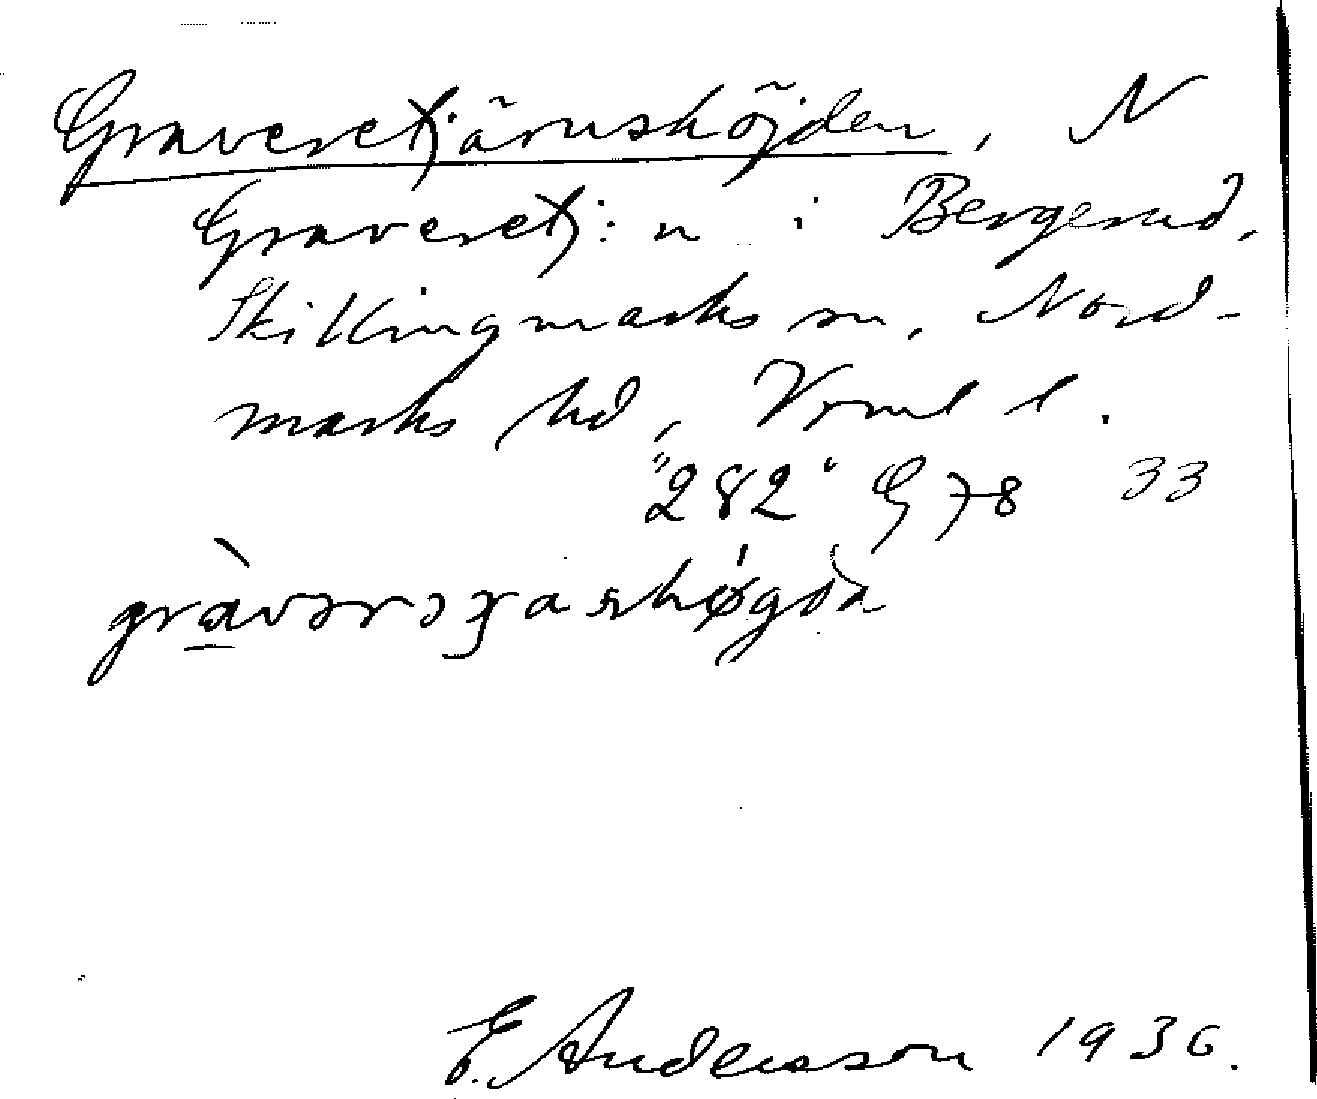 Graveretjärnshöjden, N
Graveretj:n i Bergerud,
Skillingmarks sn, Nord-
marks hd, Vrml l.
"282" G 78 33
gràvərəɟaʂhøgda
E. Andersson 1936.